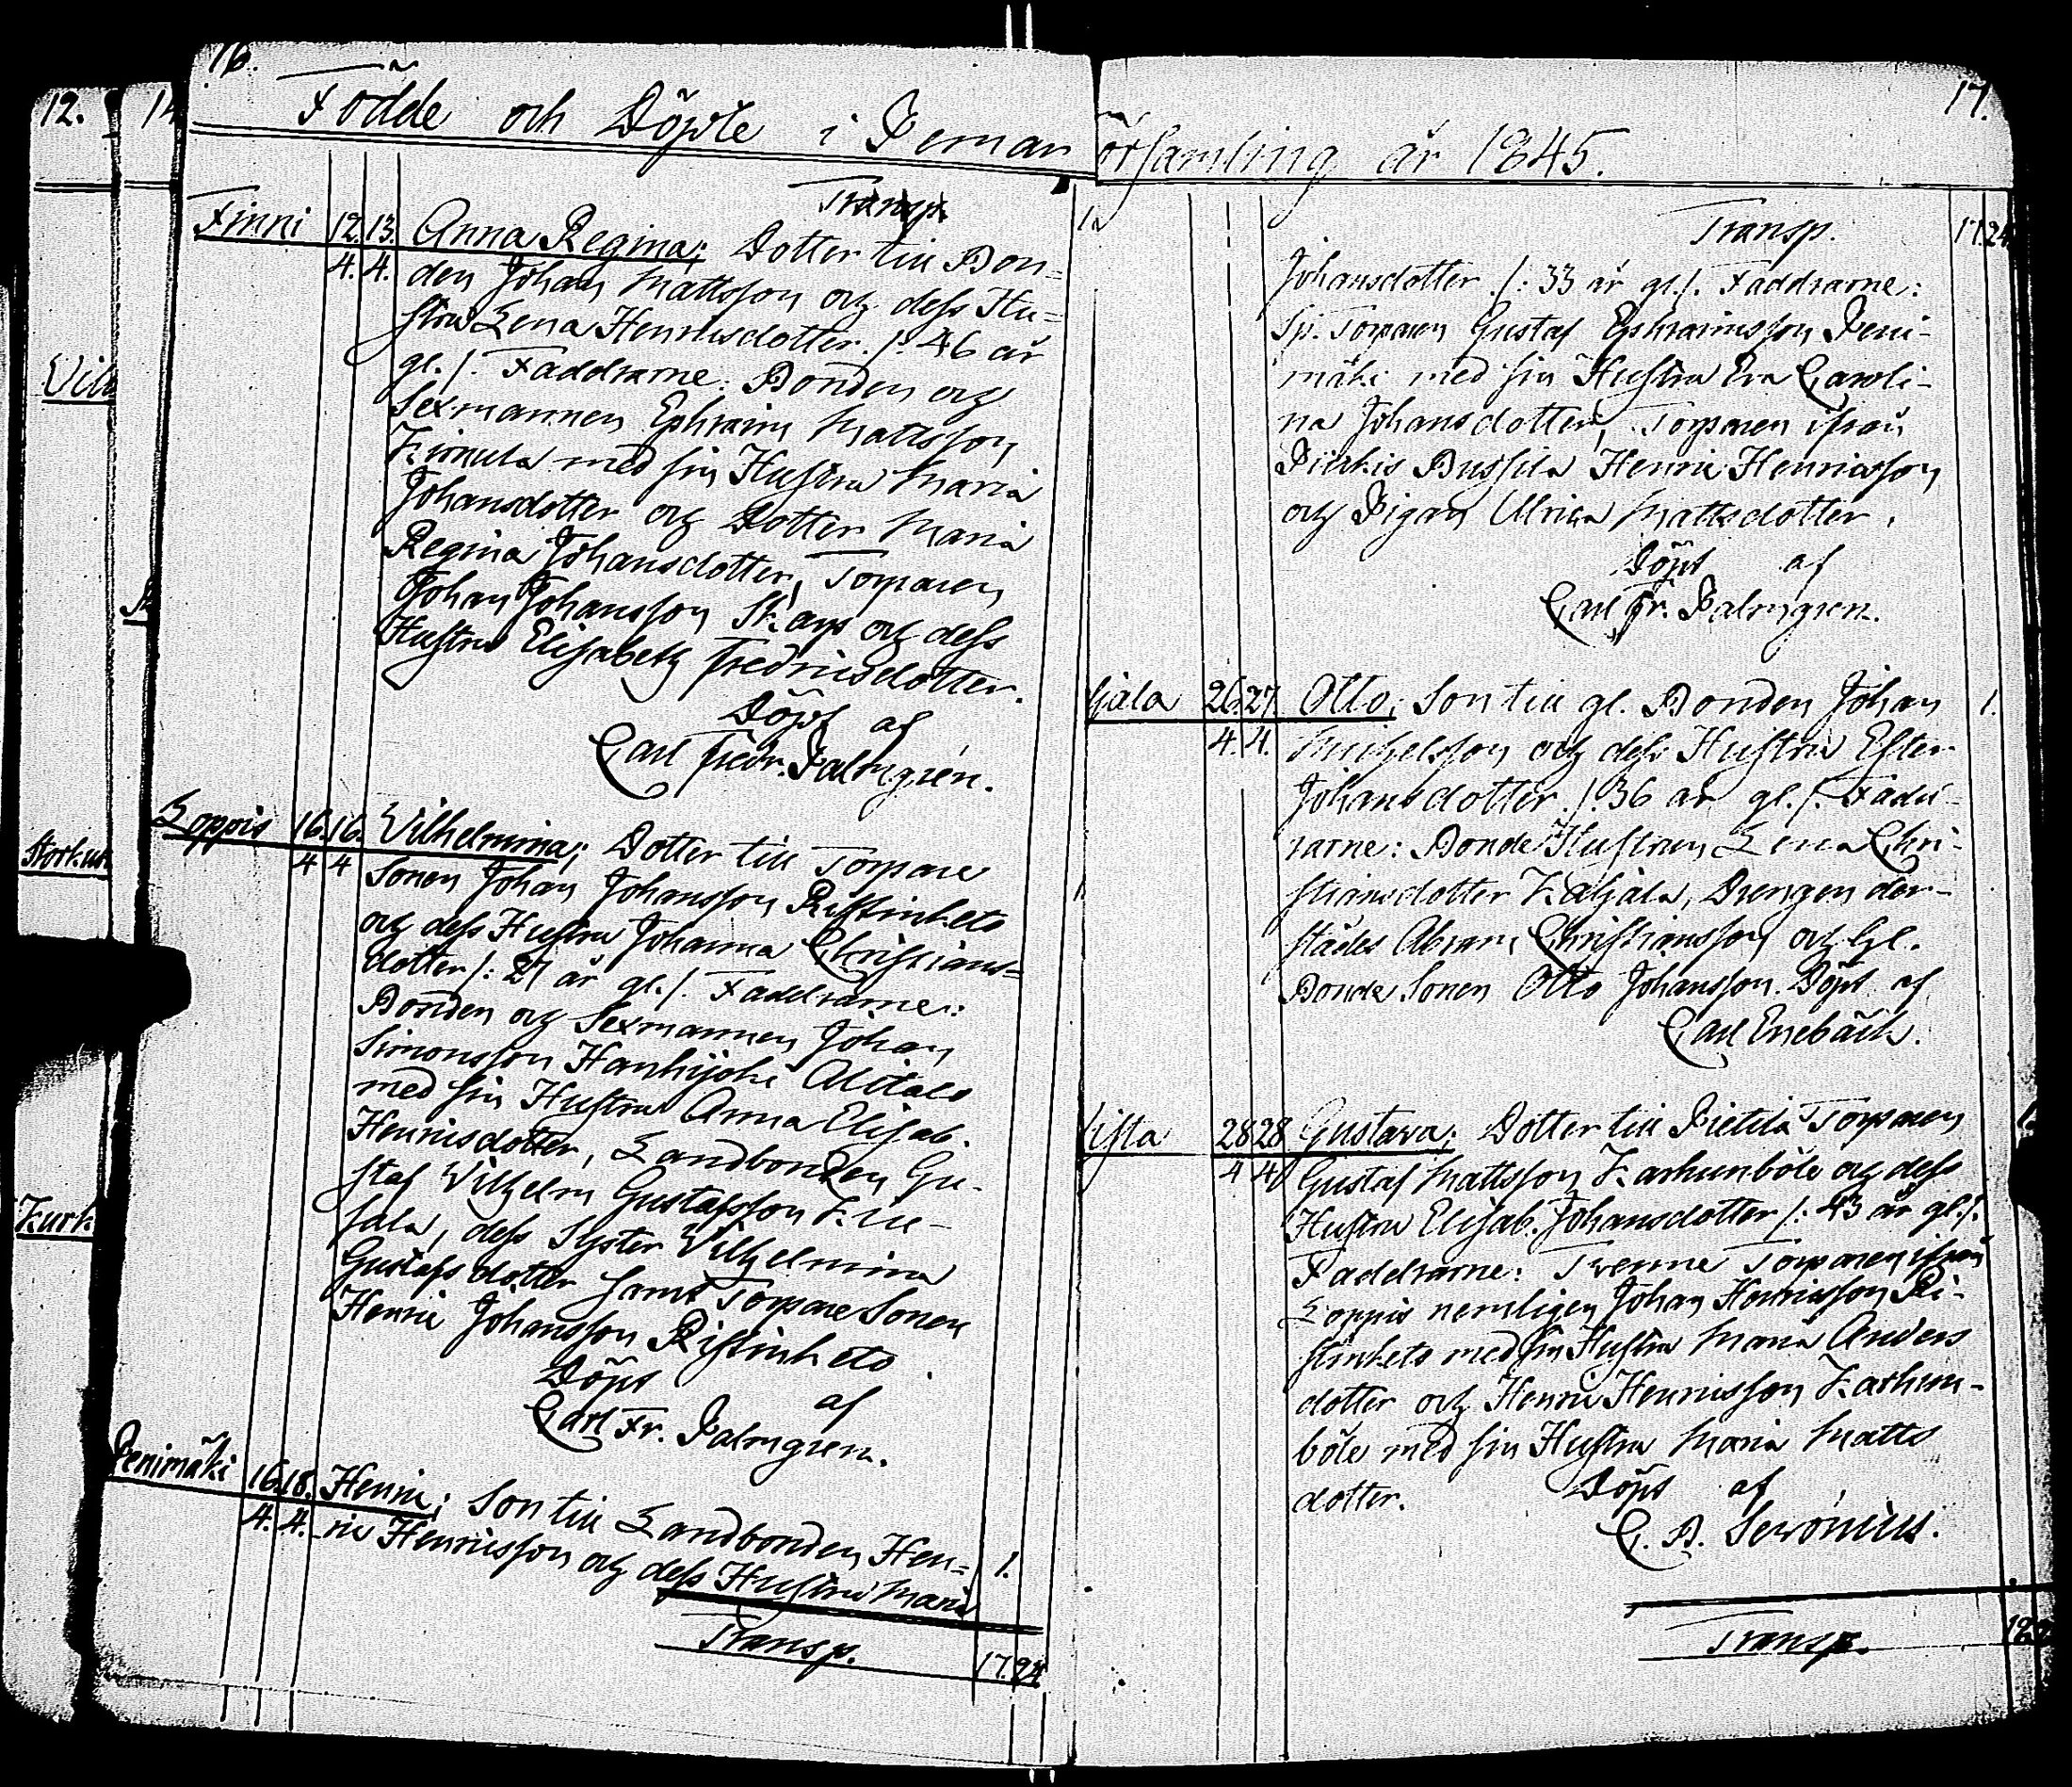 12.
14
Vill
Storkun
Kurk
16.
Födde och Döpte i Pemar
Transp.
Finni 12. 13. Anna Regina; Dotter till Bon=
4. 4. den Johan Mattsson och dess Hu=
stru Lena Henricsdotter. /: 46 år
gl. /. Faddrarne: Bonden och
Sexmannen Ephraim Mattsson
Kirmula med sin Hustru Maria
Johansdotter och Dotter Maria
Regina Johansdotter, Torparen
Johan Johansson Skarp och dess
Hustru Elisabeth Fredricsdotter.
Döpt af
Carl Fredr. Palmgrén.
Loppis 16. 16. Vilhelmina; Dotter till Torpare
4 4 Sonen Johan Johansson Ristinketo
och dess Hustru Johanna Christians=
dotter /: 27 år gl. /. Faddrarne:
Bonden och Sexmannen Johan
Simonsson Hankijoki Alitalo
med sin Hustru Anna Elisab.
Henricsdotter, Landbonden Gu-
staf Wilhelm Gustafsson Kru-
sala, dess Syster Vilhelmina
Gustafsdotter samt Torpare Sonen
Henric Johansson Ristinketo.
Döpt af
Carl Fr. Palmgren.
Penimäki 16. 18. Henric; Son till Landbonden Hen= 1.
4. 4. ric Henricsson och dess Hustru Maria
Transp. 17. 24
17.
örsamling år 1845.
Transp. 17. 24
Johansdotter. /: 33 år gl. /. Faddrarne:
Sp. Torparen Gustaf Ephraimsson Peni-
mäki med sin Hustru Eva Caroli-
na Johansdotter, Torparen ifrån
Piikkis Bussila Henric Henricsson
och Pigan Ulrica Mattsdotter.
Döpt af
Carl Fr. Palmgren.
ljala 26. 27. Otto; Son till gl. Bonden Johan 1.
4. 4. Michelsson och dess Hustru Ester
Johansdotter. /: 36 år gl. /. Fadd-
rarne: Bonde Hustrun Lena Chri-
stiansdotter Kaljala, Drengen der-
städes Abram Christiansson och Gl.
Bonde Sonen Otto Johansson. Döpt af
Carl Enebäck.
Vista 28 28 Gustava; Dotter till Pietilä Torparen
4 4 Gustaf Mattsson Karhunböle och dess
Hustru Elisab. Johansdotter /: 43 år gl. /.
Faddrarne: Tvenne Torparen ifrån
Loppis nemligen Johan Henricsson Ri-
stinketo med sin Hustru Maria Anders
dotter och Henric Henricsson Karhun-
böle med sin Hustru Maria Matts
dotter. Döpt af
C. B. Serónius.
Transp.